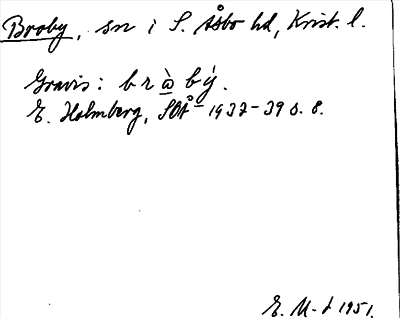 Broby, sn i S. Åsbo hd, Krist. l.
Gravis: b r à b ý.
E. Holmberg, SOÅ 1937-39 s. 8.
E. M-d 1951.